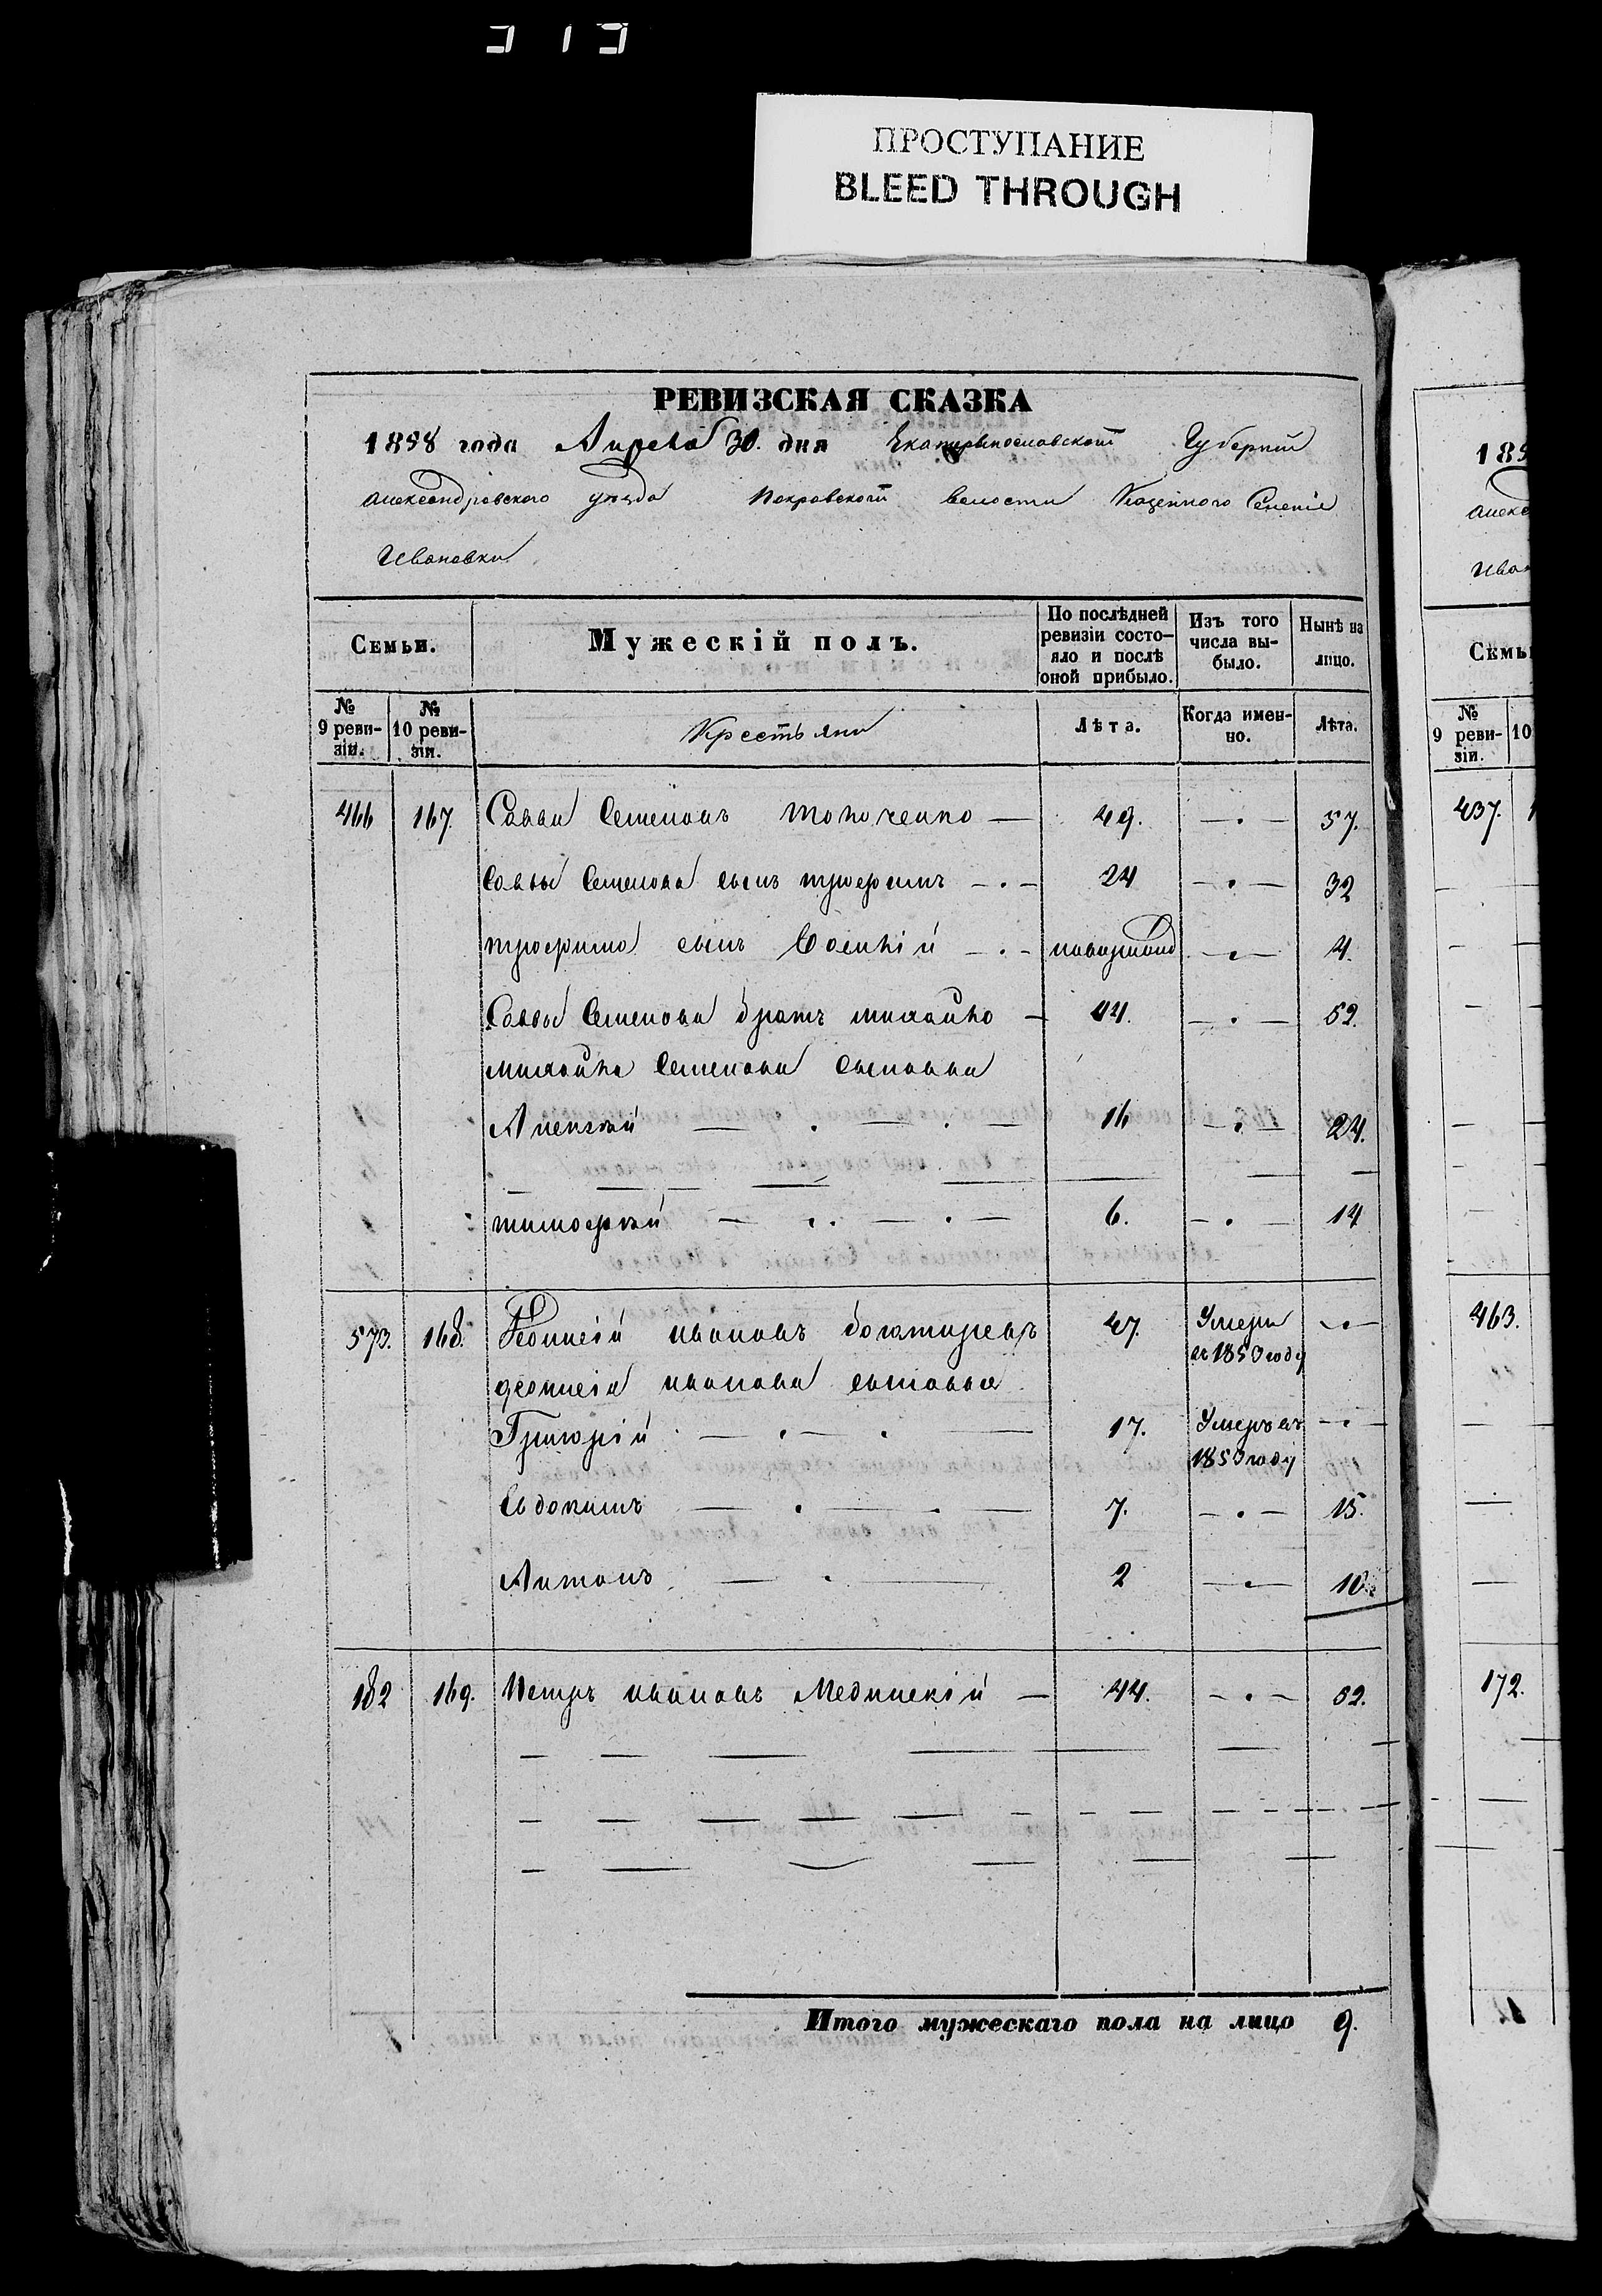 ПРОСТУПАНИЕ
BLEED THROUGH
РЕВИЗСКАЯ СКАЗКА
1858 года Апреля 30. дня Екатеринославской Губернии
Александровского уезда Покровской волости Казенного Селения
Ивановки
Семьи.
Мужескій полъ.
По послѣдней
ревизіи состо-
яло и послѣ
оной прибыло.
Изъ того
числа вы-
было.
Нынѣ на
лицо.
№
9 реви-
зіи.
№
10 реви-
зіи.
Крестьяни
Лѣта.
Когда имен-
но.
Лѣта.
466 167. Савва Семеновъ 49. 57.
Саввы Семенова сынъ трофимъ 24 32
трофима сынъ 4.
Саввы Семенова братъ михайло 44. 52.
михайла Семенова сыновья
Алексѣй 16 24.
тимофѣй 6. 14
573. 168. ивановъ богатыревъ 47. Умеръ
въ 1853 году
ивановa сыновья
Григорій 17. Умеръ въ
1853 году
Евдокимъ 7. 15.
Антонъ 2 10.
182 169. Петръ ивановъ Мединскій 44. 52.
Итого мужескаго пола на лицо 9.
185
Алекс
Иван
Семьи
№
9 реви-
зіи.
10
437.
463.
172.